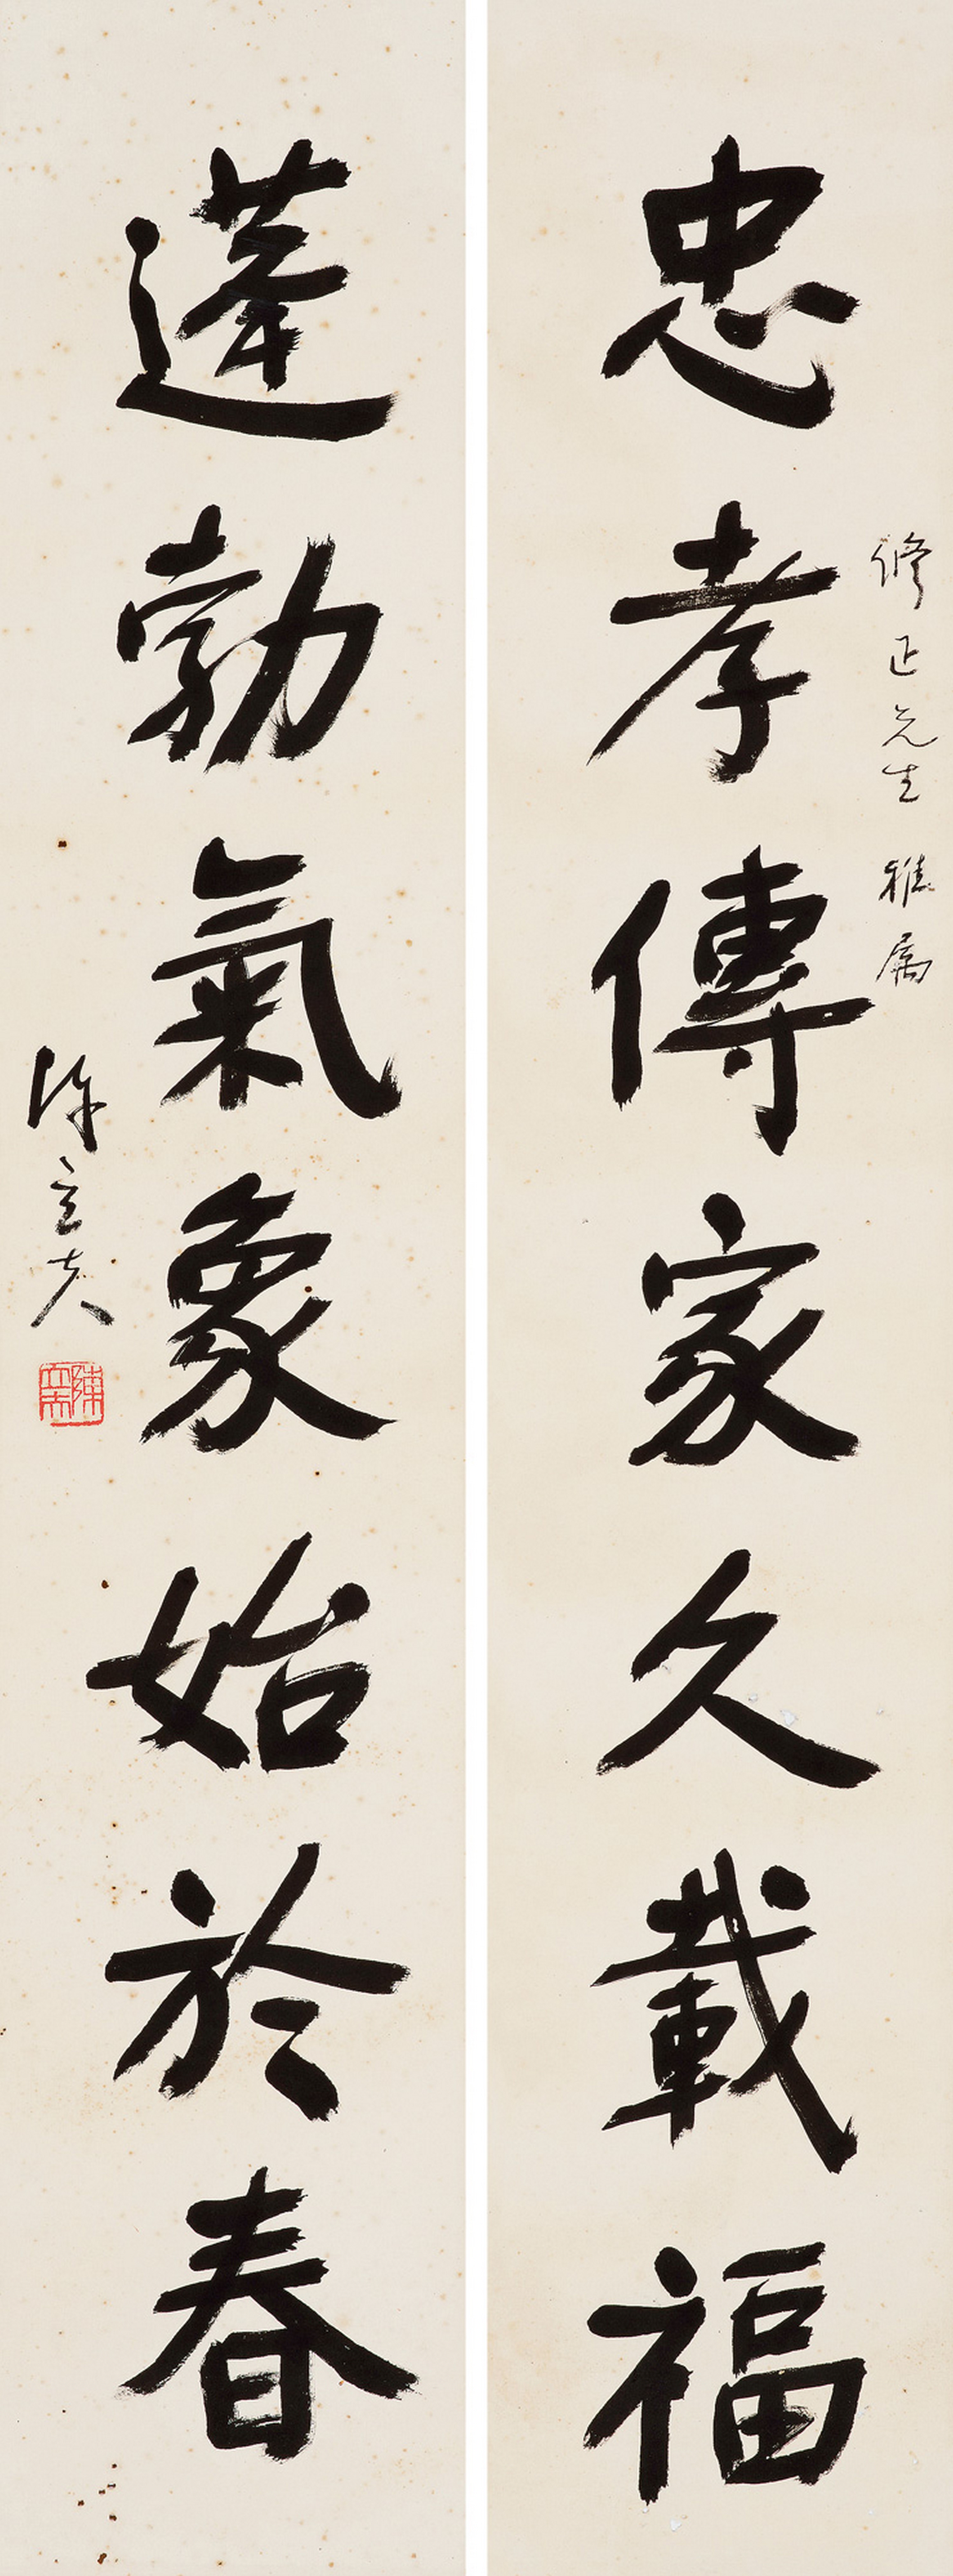 忠孝傳家久載福
修正先生雅屬
蓬勃氣象始於春
陳立夫